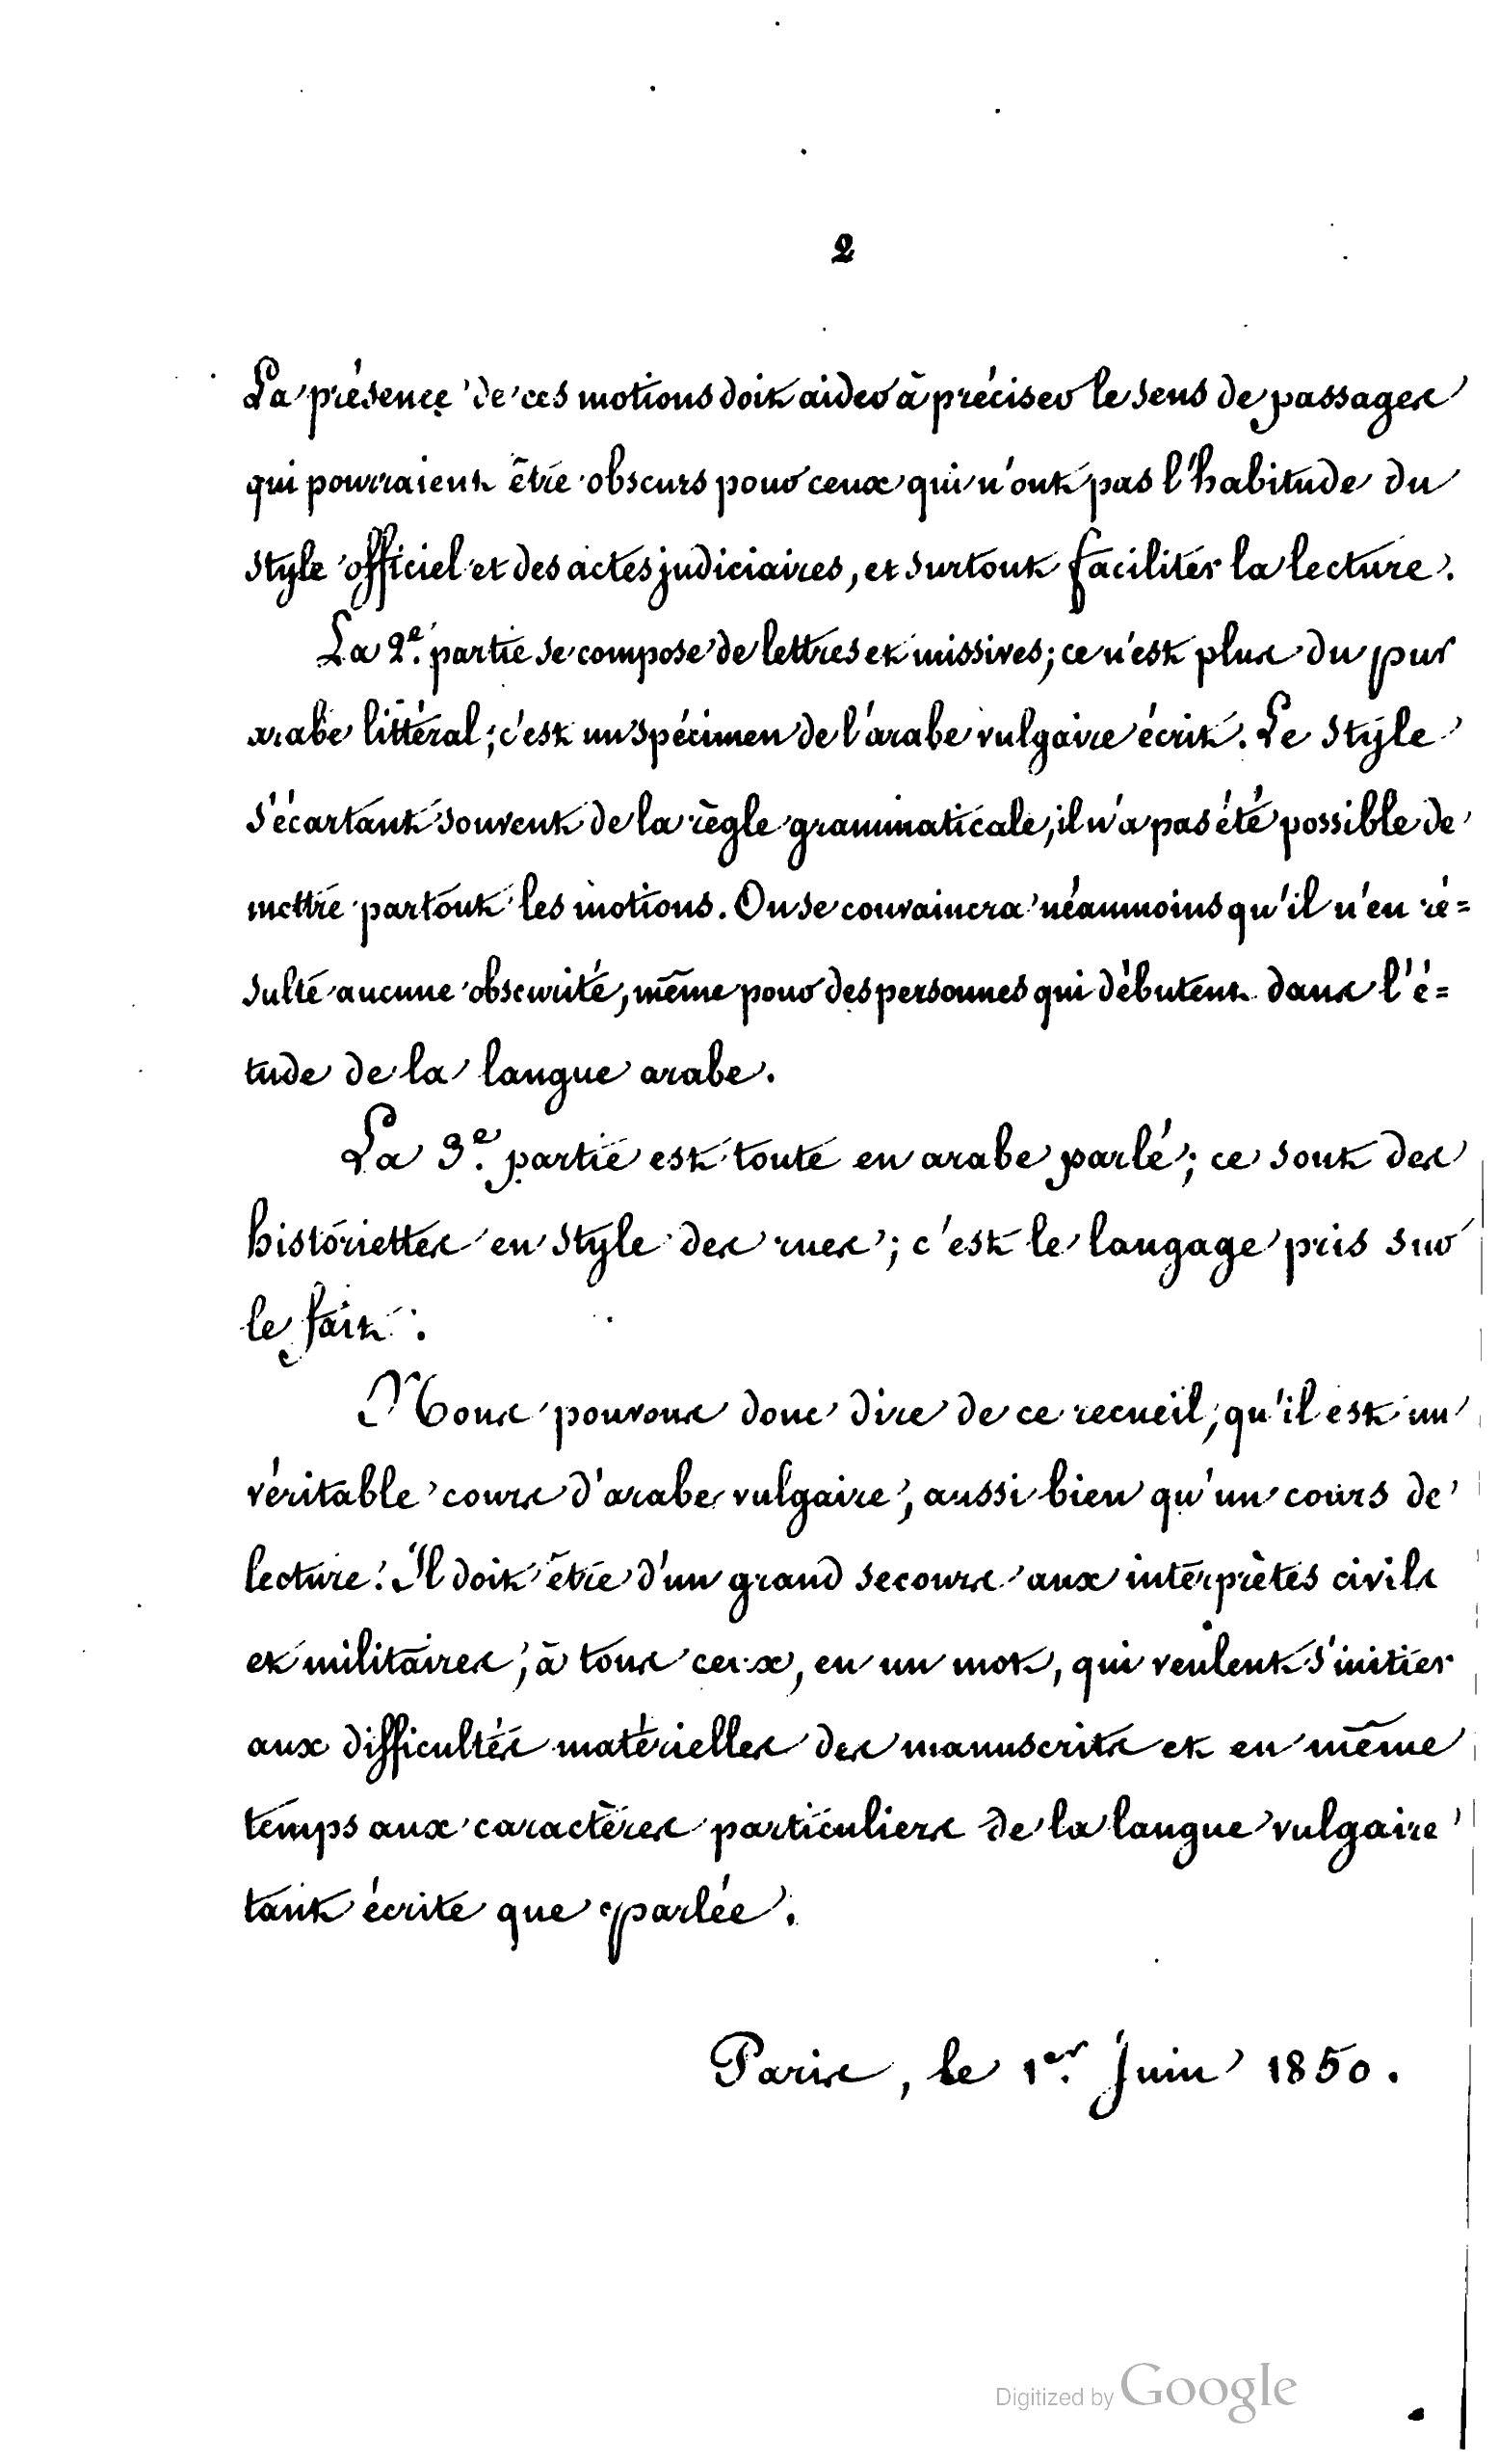 2
La présence de ces motions doit aider à préciser le sens de passages
qui pourraient être obscurs pour ceux qui n'ont pas l'habitude du
style officiel et des actes judiciaires, et surtout faciliter la lecture.
La 2e. partie se compose de lettres et missives; ce n'est plus du pur
arabe littéral; c'est un spécimen de l'arabe vulgaire écrit. Le style
s'écartant souvent de la règle grammaticale, il n'a pas été possible de
mettre partout les motions. On se convaincra néanmoins qu'il n'en ré=
sulte aucune obscurité, même pour des personnes qui débutent dans l'é=
tude de la langue arabe.
La 3e. partie est toute en arabe parlé; ce sont des
historiettes en style des rues; c'est le langage pris sur
le fait.
Nous pouvons donc dire de ce recueil, qu'il est un
véritable cours d'arabe vulgaire, aussi bien qu'un cours de
lecture. Il doit être d'un grand secours aux interprètes civils
et militaires, à tous ceux, en un mot, qui veulent s'initier
aux difficultés matérielles des manuscrits et en même
temps aux caractères particuliers de la langue vulgaire
tant écrite que parlée.
Paris, le 1er. Juin 1850.
Digitized by Google